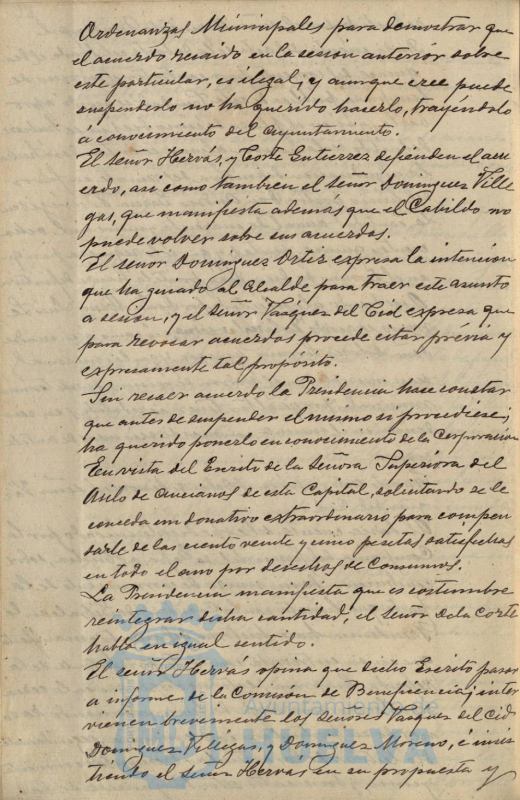 Ordenanzas Municipales para demostrar que
el acuerdo recaido en la sesion anterior sobre
este particular, es ilegal; y aunque cree puede
suspenderlo no ha querido hacerlo, trayéndolo
á conocimiento del Ayuntamiento.
El señor Hervás, y Corte Gutierrez defienden el acu
erdo, asi como tambien el señor Dominguez Ville
gas, que manifiesta además que el Cabildo no
puede volver sobre sus acuerdos.
El señor Dominguez Ortiz expresa la intencion
que ha guiado al Alcalde para traer este asunto
a sesion, y el señor Vasques del Cid expresa que
para revocar acuerdos procede citar prévia y
expresamente tal propósito.
Sin recaer acuerdo la Presidencia hace constar
que antes de suspender el mismo si procediese;
ha querido ponerlo en conocimiento de la Corporacion
En vista del Escrito de la Señora Superiora del
Asilo de Ancianos de esta Capital, solicitando se le
conceda un donativo extraordinario para compen
sarle de las ciento veinte y cinco pesetas satisfechas
en todo el año por derechos de Consumos.
La Presidencia manifiesta que es costumbre
reintegrar dicha cantidad, el señor de la Corte
habla en igual sentido.
El señor Hervás opina que dicho Escrito pasase
a informe de la Comision de Beneficencia; inter
vienen brevemente los señores Vasques del Cid
Dominguez Villegas, y Dominguez Moreno, é insis
tiendo el señor Hervás en su propuesta y
Ayuntamiento de
HUELVA